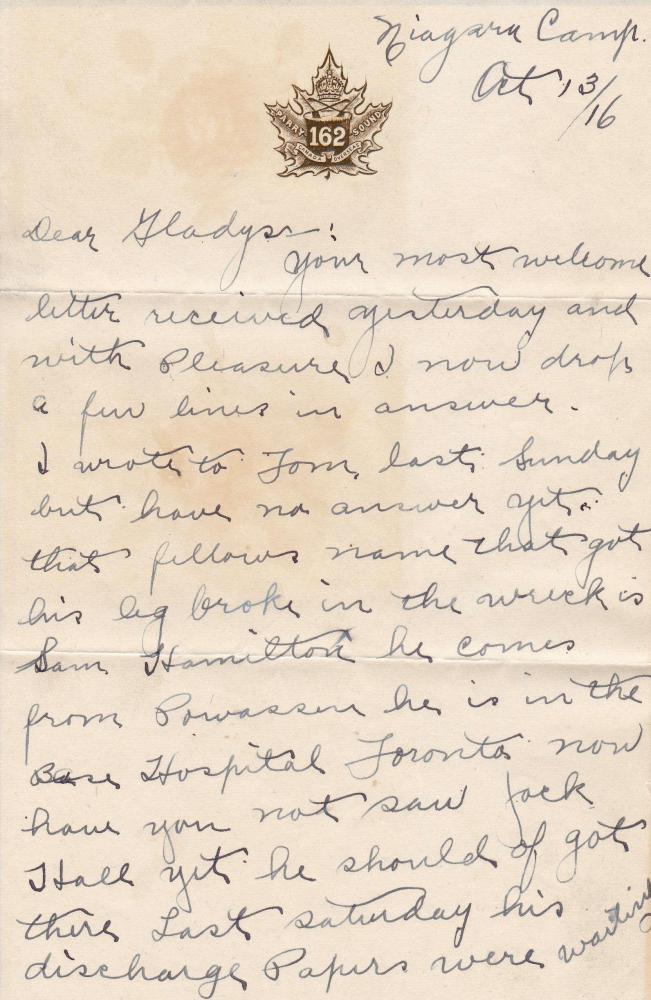 Niagara Camp.
Oct 13/16
PARRY SOUND
162
CANADA OVERSEAS
Dear Gladys:
Your most welcome
letter received yesterday and
with Pleasure I now drop
a few lines in answer.
I wrote to Tom last Sunday
but have no answer yet.
that fellows name that got
his leg broke in the wreck is
Sam Hamilton he comes
from Powassen he is in the
Base Hospital Toronto now
have you not saw Jack
Hall yet he should of got
there Last saturday his
discharge Papers were waiting